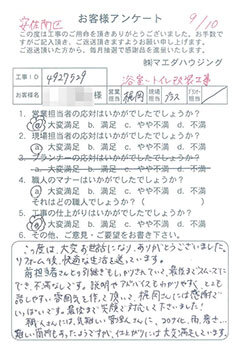 安佐南区
お客様アンケート
9/10
この度は工事のご用命を頂きありがとうございました。お手数で
すがご記入頂き、ご返送頂きますようお願い申し上げます。
ご返送頂いた方から、毎月抽選で感謝品を進呈いたします。
㈱マエダハウジング
工事ID 4927529 浴室・トイレ改装工事
お客様名 様 営業担当 梶岡 工事担当
1. 営業担当者の対応はいかがでしたでしょうか?
a. 大変満足 b. 満足 c. やや不満 d. 不満
2. 工事担当者の対応はいかがでしたでしょうか?
a. 大変満足 b. 満足 c. やや不満 d. 不満
3. プランナーの対応はいかがでしたでしょうか?
a. 大変満足 b. 満足 c. やや不満 d. 不満
4. 職人のマナーはいかがでしたでしょうか?
a. 大変満足 b. 満足 c. やや不満 d. 不満
それはどの職人でしょうか?( )
5. 工事の仕上がりはいかがでしたでしょうか?
a. 大変満足 b. 満足 c. やや不満 d. 不満
6. その他、ご意見・ご要望をお書き下さい。
この度は、大変お世話になり、ありがとうございました。
リフォーム後、快適な生活を送っています。
前担当者さんとの引継ぎもしっかりされていて、最後までスムーズに
でき、不満なしです。説明やアドバイスもわかりやすく、とても
話しやすい雰囲気を作って頂いて、梶岡さんには感謝で
いっぱいです。最後まで笑顔で対応して下さいました。
職人さんには、
難しい箇所もあったようですが、仕上がりには大変満足しています。